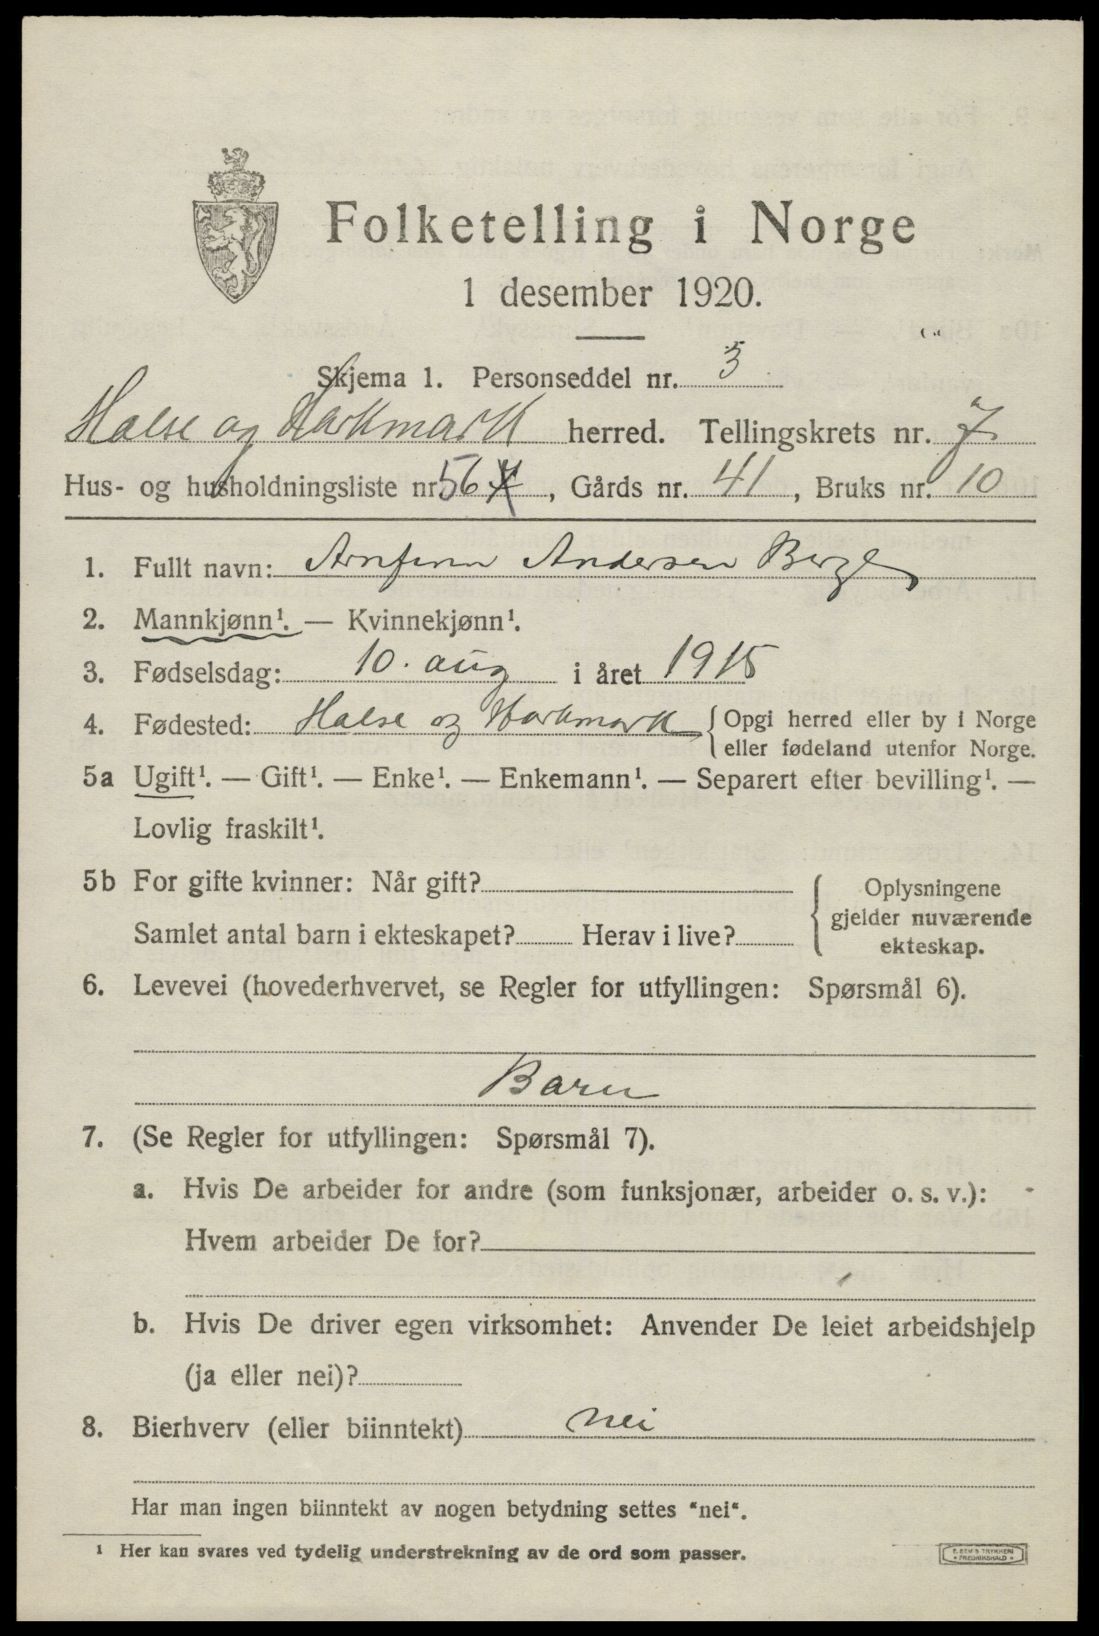 Folketelling i Norge
1 desember 1920.
Skjema 1. Personseddel nr. 3
Halse og Harkmark herred. Tellingskrets nr. 7
Hus- og husholdningsliste nr. 56, Gårds nr. 41, Bruks nr. 10
1. Fullt navn: Arnfinn Andersen Berge
2. Mannkjønn¹. — Kvinnekjønn¹.
3. Fødselsdag: 10. aug i året 1915
4. Fødested: Halse og Harkmark {Opgi herred eller by i Norge
eller fødeland utenfor Norge.
5a Ugift¹. — Gift¹. — Enke¹. — Enkemann¹. — Separert efter bevilling¹. —
Lovlig fraskilt¹.
5b For gifte kvinner: Når gift? { Oplysningene
gjelder nuværende
Samlet antal barn i ekteskapet? Herav i live?
ekteskap.
6. Levevei (hovederhvervet, se Regler for utfyllingen: Spørsmål 6).
Barn
7. (Se Regler for utfyllingen: Spørsmål 7).
a. Hvis De arbeider for andre (som funksjonær, arbeider o. s. v.):
Hvem arbeider De for?
b. Hvis De driver egen virksomhet: Anvender De leiet arbeidshjelp
(ja eller nei)?
8. Bierhverv (eller biinntekt) nei
Har man ingen biinntekt av nogen betydning settes “nei“.
¹ Her kan svares ved tydelig understrekning av de ord som passer.